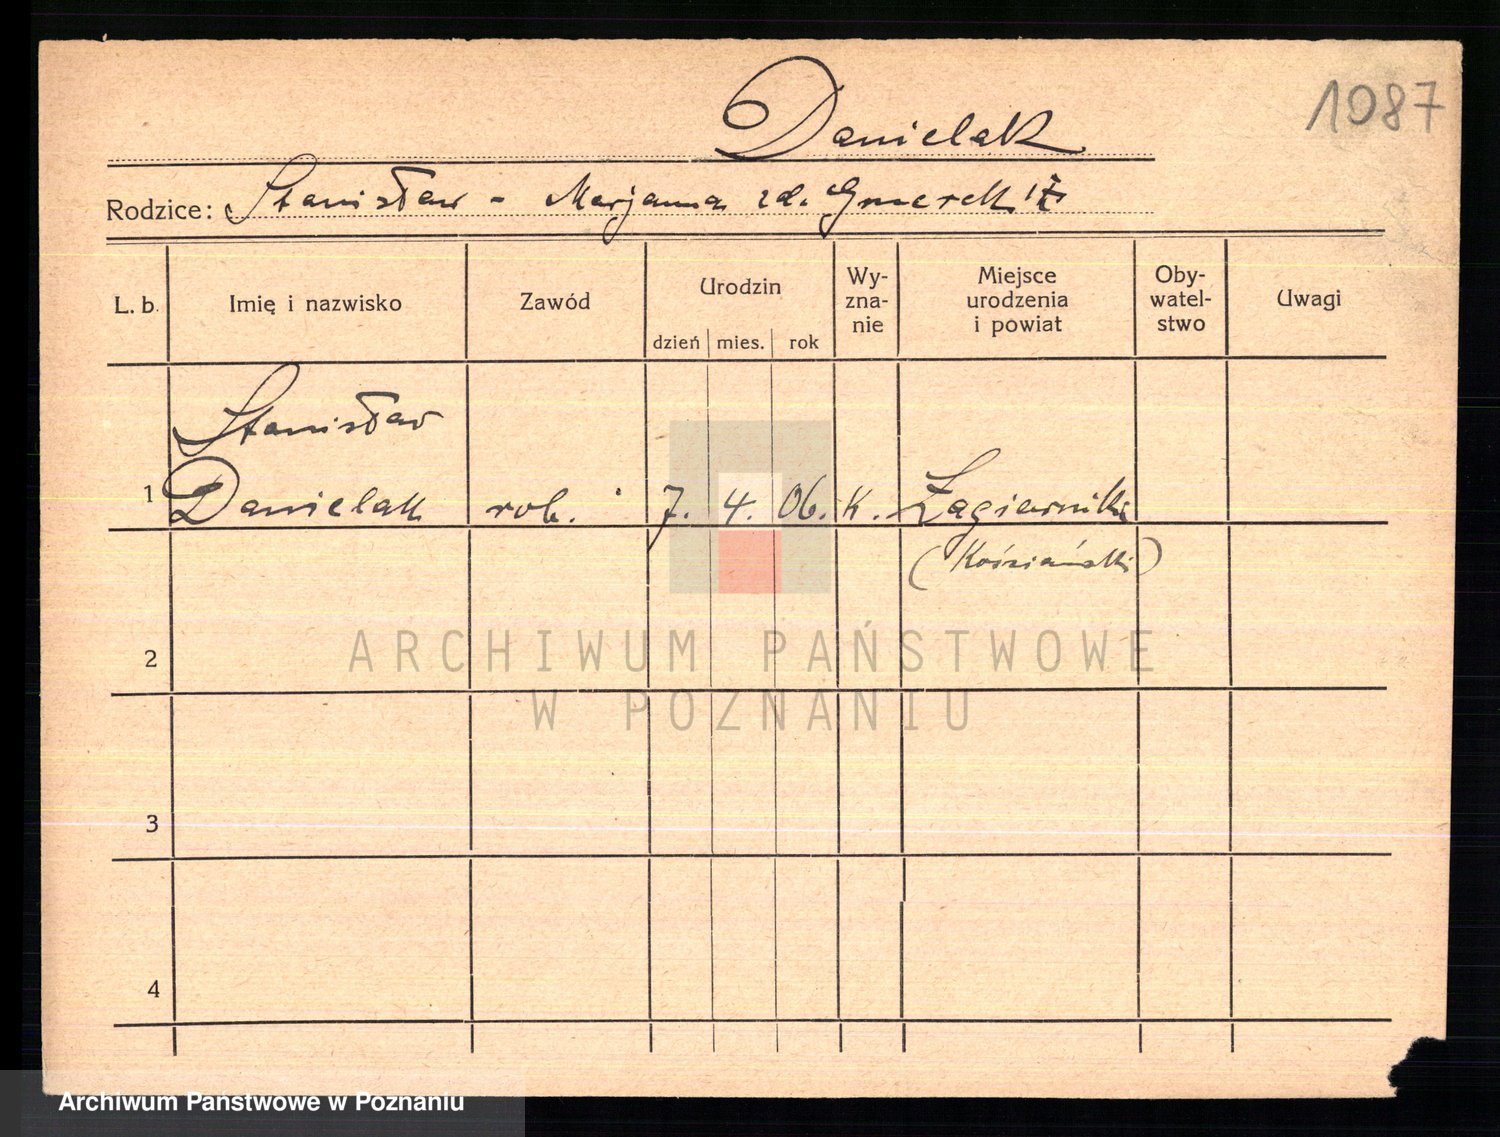 1087
Danielak
Rodzice: Stanisław - Marjanna zd. Gmerek
L. b. Imię i nazwisko Zawód Urodzin dzień mies. rok Wy-zna-nie Miejsce urodzenia i powiat Oby-watel-stwo Uwagi
Stanisław
1 Danielak rob. 7. 4. 06. K.
(Kościański)
2
ARCHIWUM PAŃSTWOWE
W POZNANIU
3
4
Archiwum Państwowe w Poznaniu